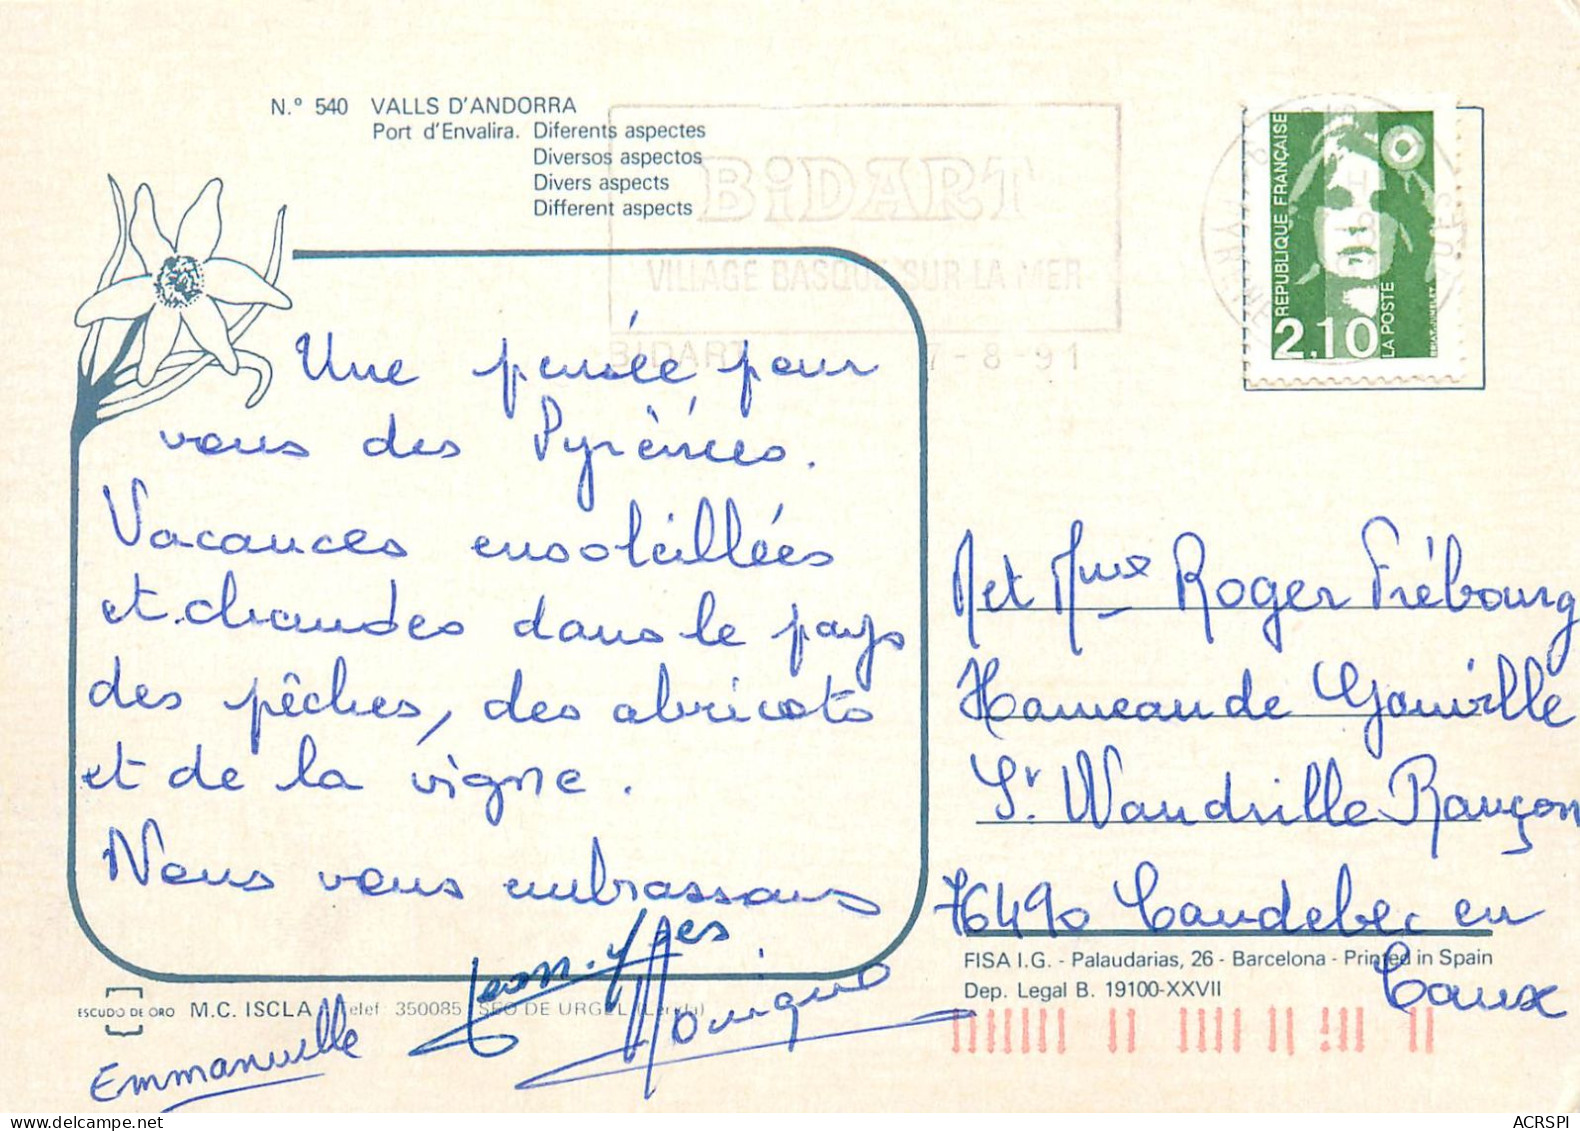 N.º 540 VALLS D'ANDORRA
Port d'Envalira. Diferents aspectes
Diversos aspectos
Divers aspects
Different aspects
BiDART
VILLAGE BASQUE SUR LA MER
BIDART 7-8-91
REPUBLIQUE FRANÇAISE
2,10
LA POSTE
Une pensée pour
vous des Pyrénées.
Vacances ensoleillées
et chaudes dans le pays
des pêches, des abricots
et de la vigne.
Nous vous embrassons
Jean-Yves
Monique
Emmanuelle
M et Mme Roger Frébourg
Hameau de Gauville
St Wandrille Rançon
76490 Caudebec en
Caux
FISA I.G. - Palaudarias, 26 - Barcelona - Printed in Spain
Dep. Legal B. 19100-XXVII
ESCUDO DE ORO M.C. ISCLA Telef 350085 SEO DE URGEL (Lérida)
ACRSPI